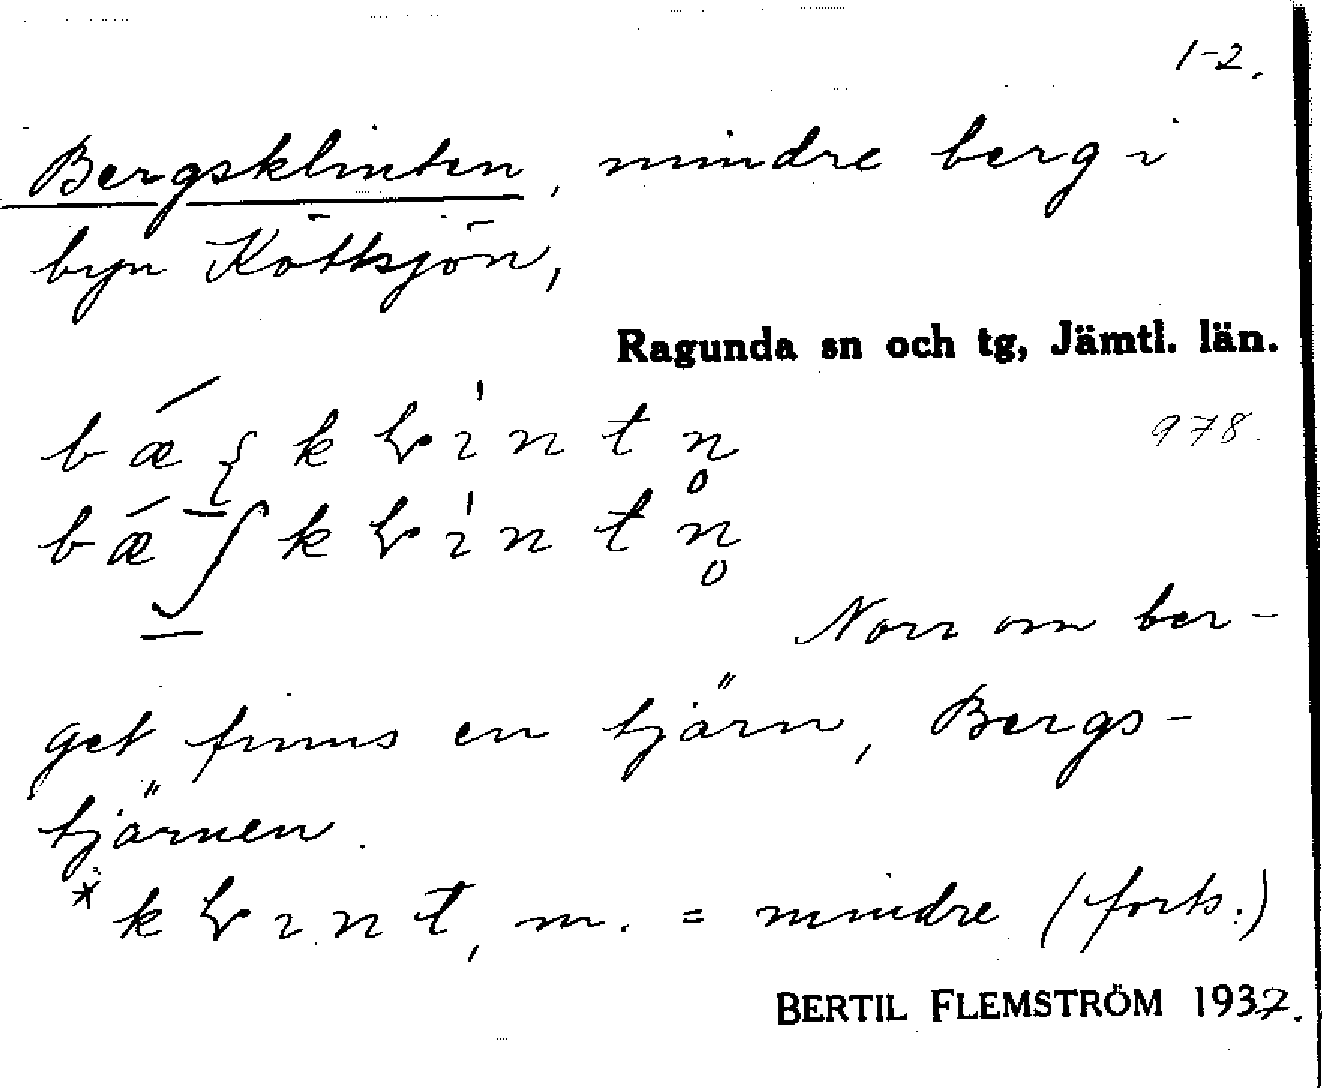 1-2.
Bergsklinten, mindre berg i
byn Köttsjön,
Ragunda sn och tg, Jämtl. län.
978.
Norr om ber-
get finns en tjärn, Bergs-
tjärnen.
m. = mindre (forts.)
BERTIL FLEMSTRÖM 1937.